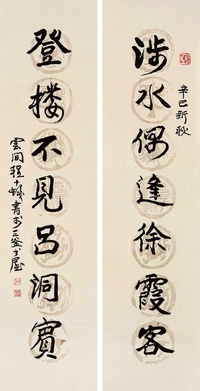 涉水偶逢徐霞客
辛巳新秋
登楼不见吕洞賓
雲间程十髮書于三釜书屋